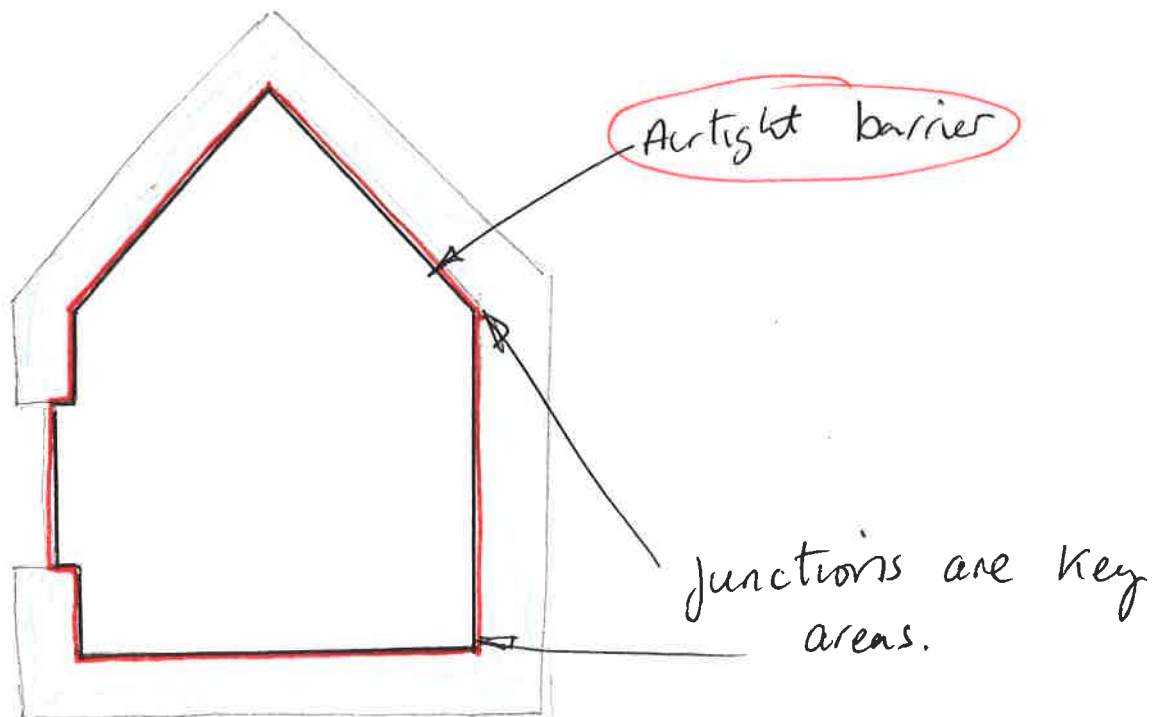 Airtight barrier
Junctions are key
areas.